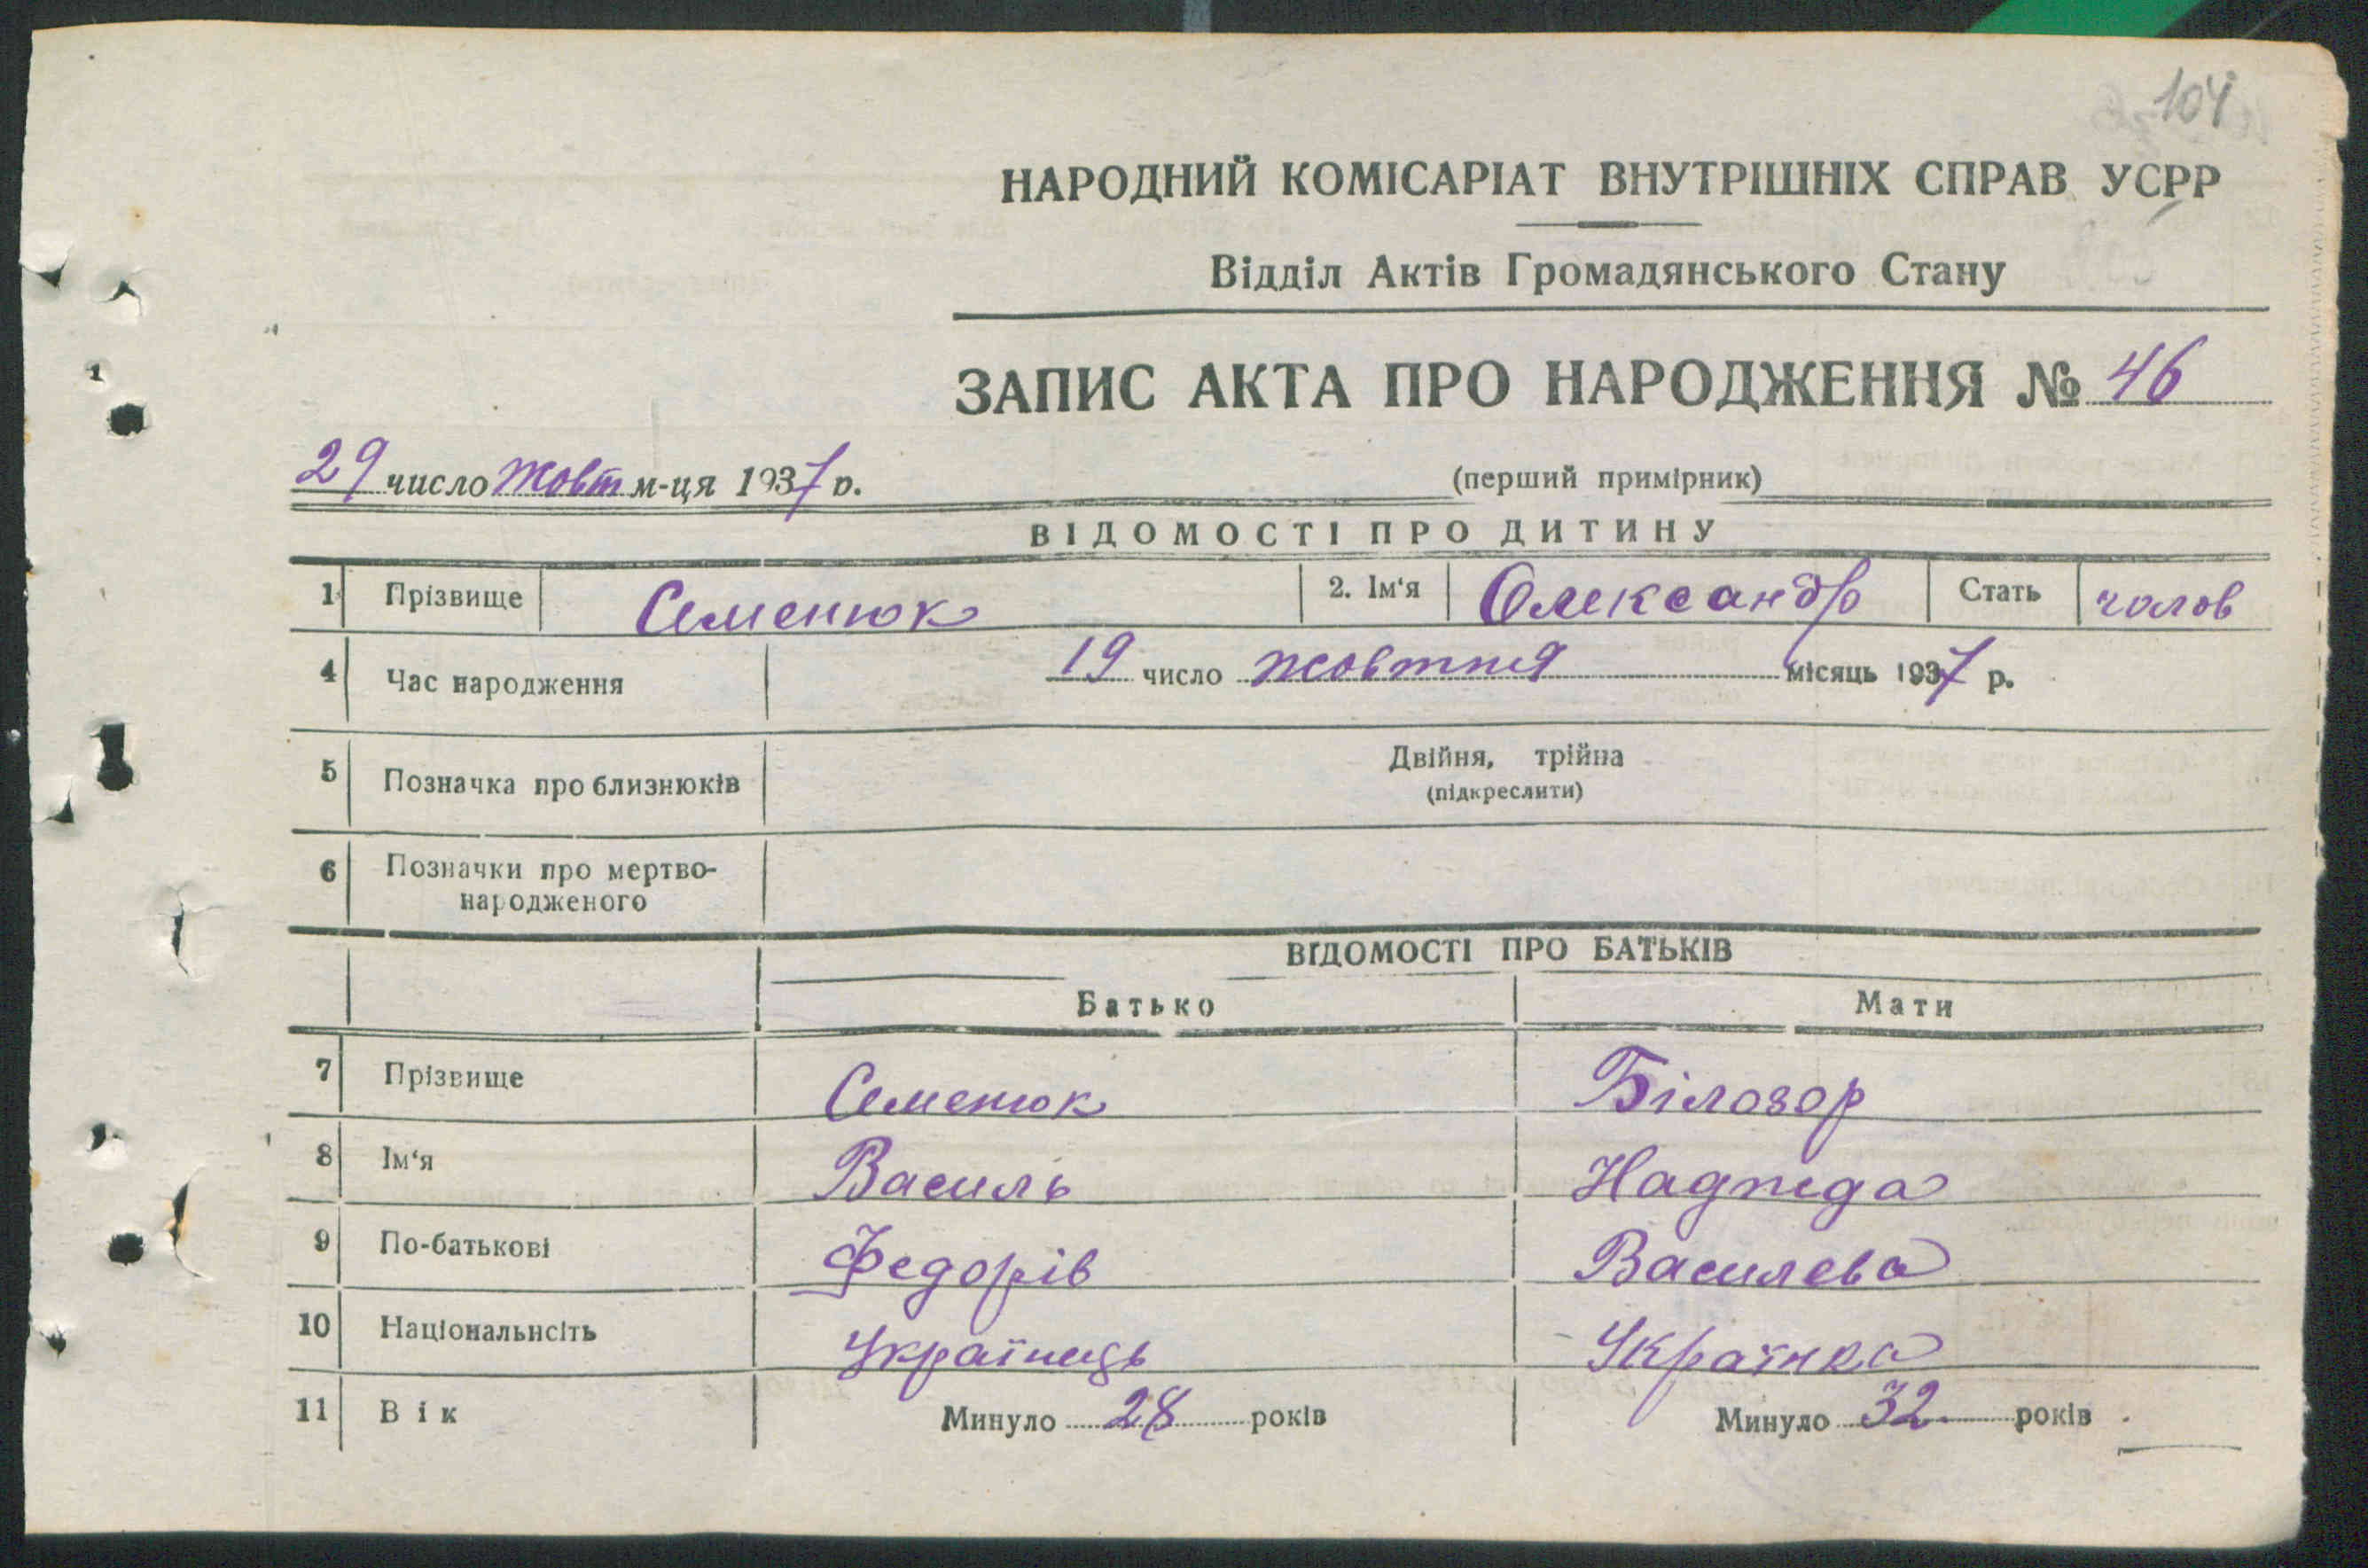 104
НАРОДНИЙ КОМІСАРІАТ ВНУТРІШНІХ СПРАВ УСРР
Відділ Актів Громадянського Стану
ЗАПИС АКТА ПРО НАРОДЖЕННЯ № 46
29 число жовт м-ця 1937 р.
(перший примірник)
ВІДОМОСТІ ПРО ДИТИНУ
1 Прізвище Семенюк 2. Ім‘я Олександр Стать чолов
4 Час народження 19 число жовтня місяць 1937 р.
5 Позначка про близнюків Двійня, трійна
(підкреслити)
6 Позначки про мертво-
народженого
ВІДОМОСТІ ПРО БАТЬКІВ
Батько Мати
7 Прізвище Семенюк Білозор
8 Ім‘я Василь Наджеда
9 По-батькові Федорів Василева
10 Національнсіть Українець Українка
11 Вік Минуло 28 років Минуло 32 років